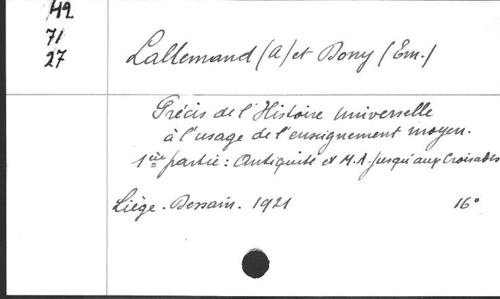 H2
71
27
Lallemand (A) et Bony (Em.)
Précis de l'Histoire Universelle
à l'usage de l'enseignement moyen.
1ère partie : Antiquité et M.A. jusqu'aux Croisades
Liège. Dessain. 1921 16°